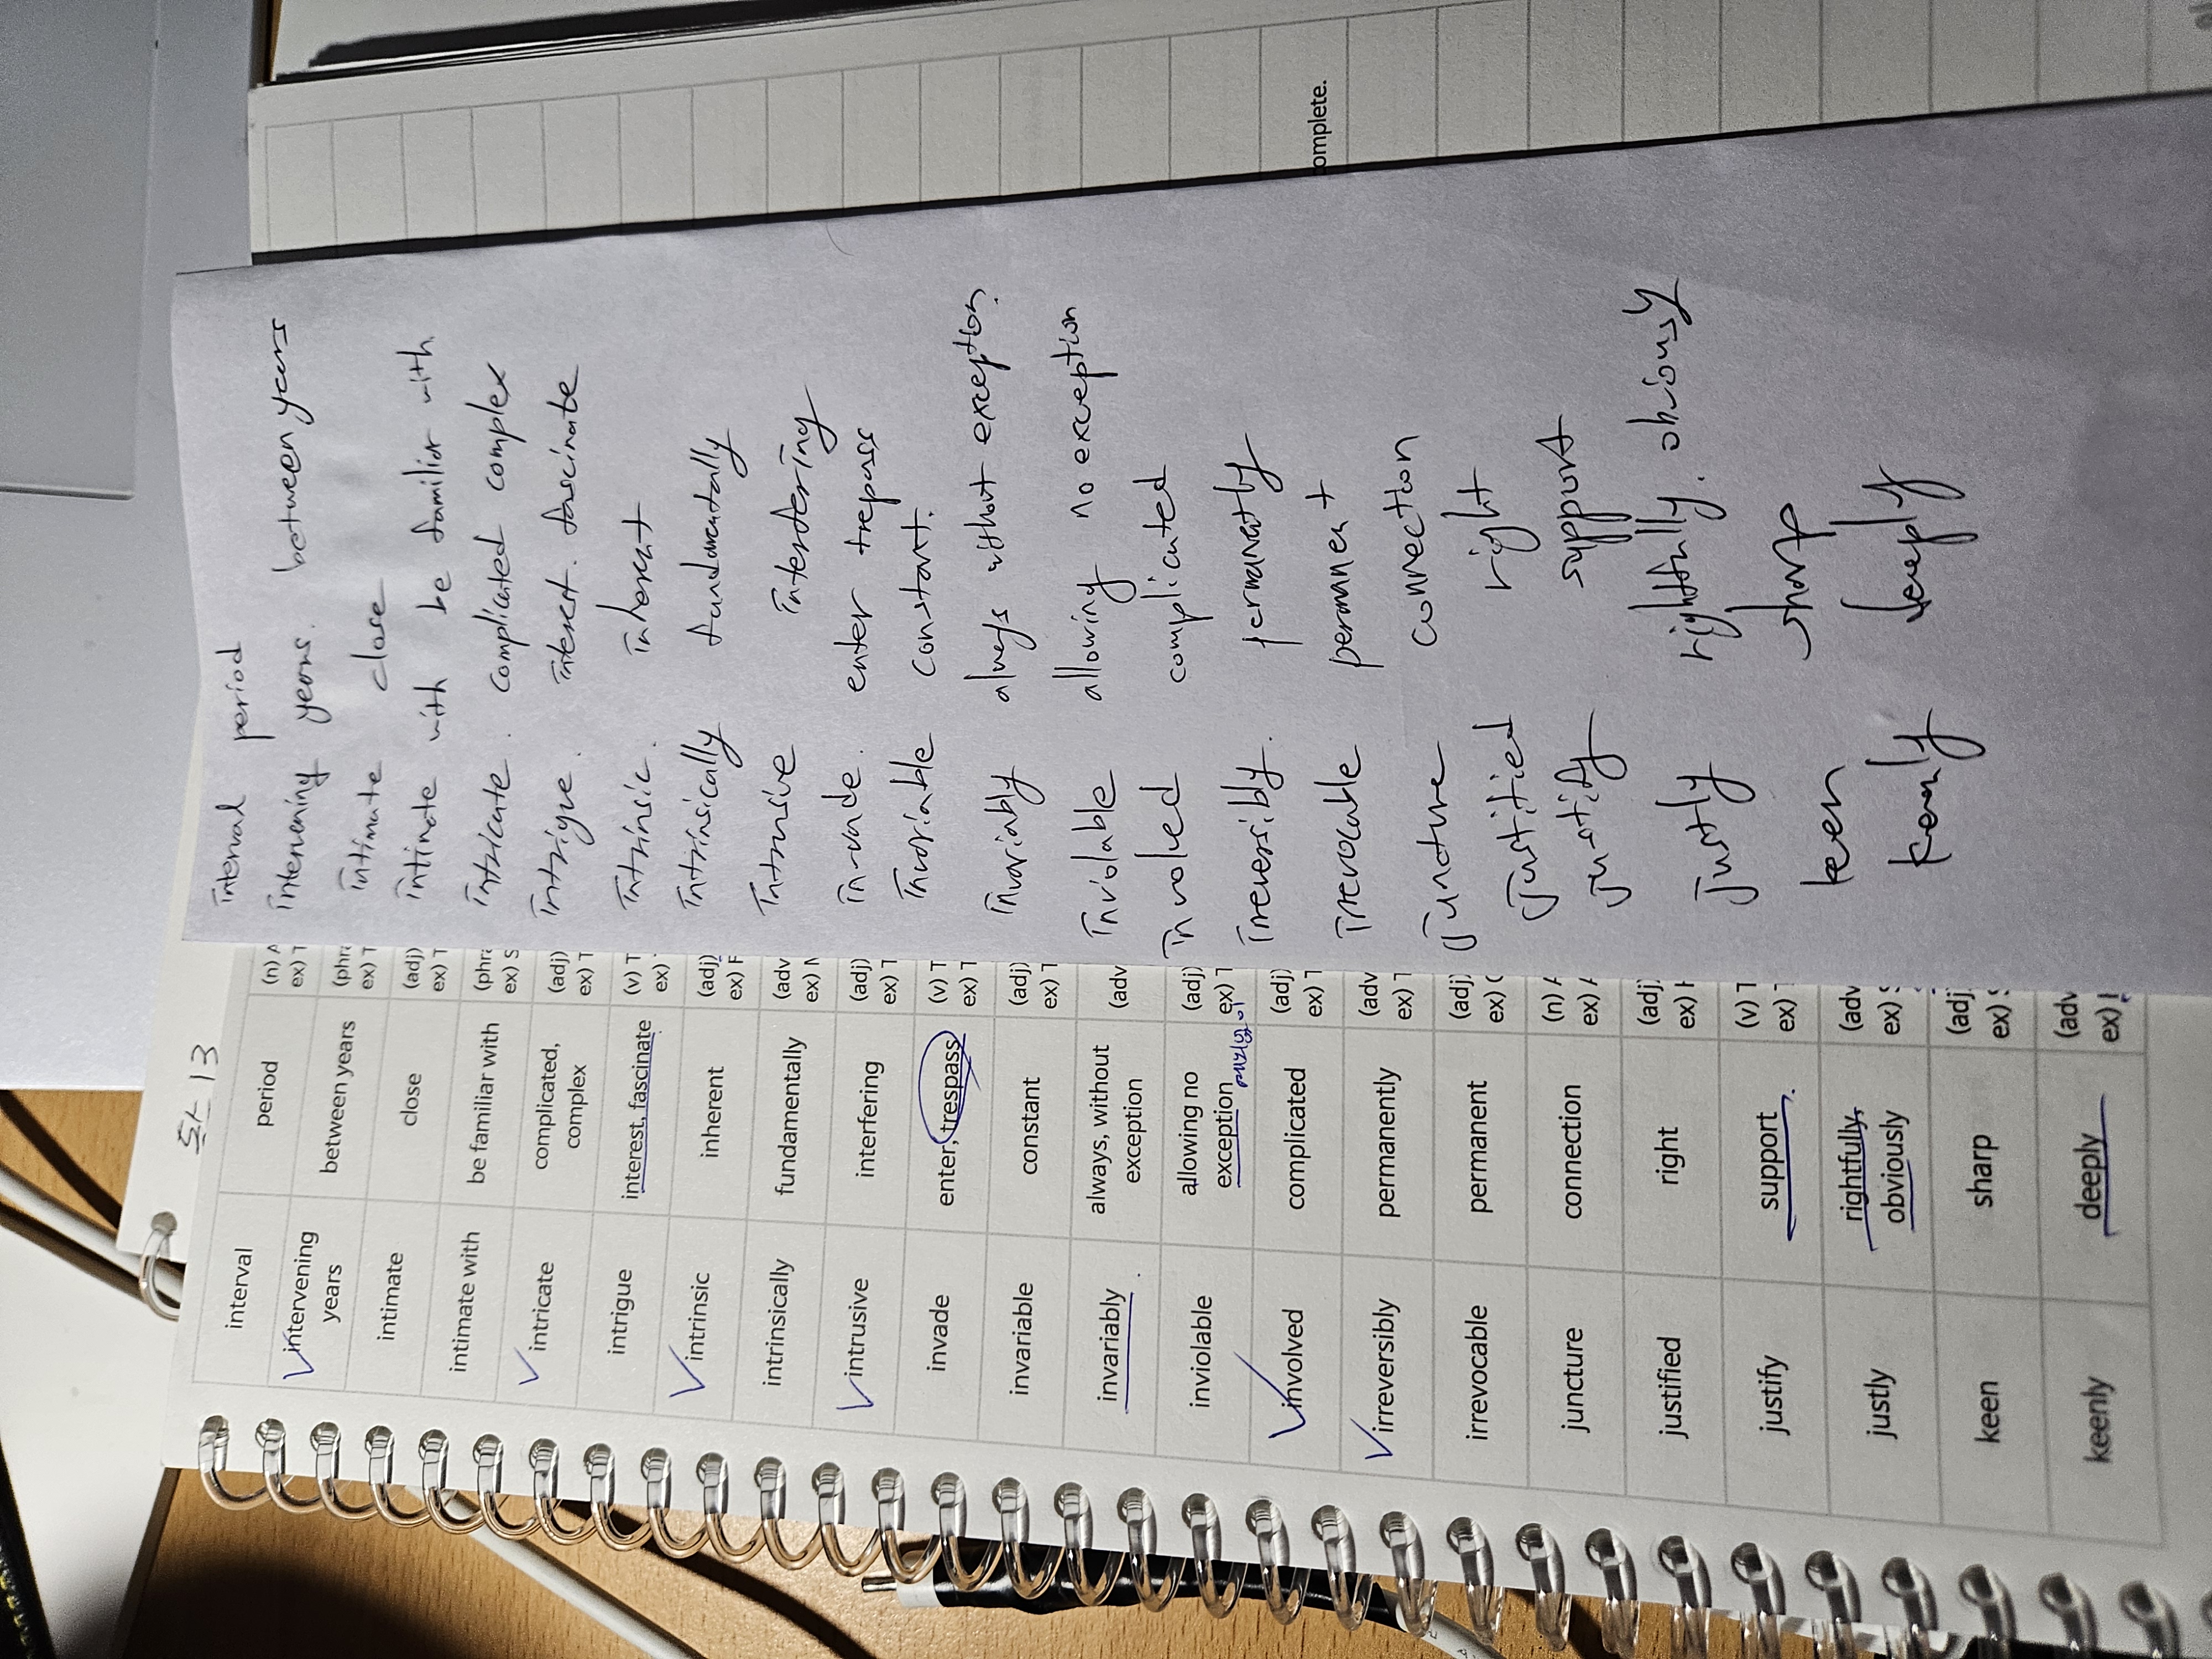 interval period (n) A
ex) T
intervening years between years (phra
ex) T
intimate close (adj)
ex) T
intimate with be familiar with (phra
ex) S
intricate complicated, complex (adj)
ex) T
intrigue interest, fascinate (v) T
ex)
intrinsic inherent (adj)
ex) F
intrinsically fundamentally (adv
ex) N
intrusive interfering (adj)
ex) T
invade enter, trespass (v) T
ex) T
invariable constant (adj)
ex) T
invariably always, without exception (adv
inviolable allowing no exception (adj)
ex) T
involved complicated (adj)
ex) T
irreversibly permanently (adv
ex) T
irrevocable permanent (adj)
ex) C
juncture connection (n) A
ex) A
justified right (adj)
ex) H
justify support (v) T
ex) T
justly rightfully, obviously (adv
ex) S
keen sharp (adj)
ex) S
keenly deeply (adv
ex)
interval period
intervening years. between years
intimate close
intimate with be familiar with
intricate. complicated complex
intrigue. interest. fascinate
intrinsic. inherent
intrinsically fundamentally
intrusive interfering
invade. enter trepass
invariable constant.
invariably always without exception.
inviolable allowing no exception
involved complicated
irreversibly. permanently
irrevocable permanent
juncture connection
justified right
justify support
justly rightfully. obviously
keen sharp
keenly deeply
omplete.